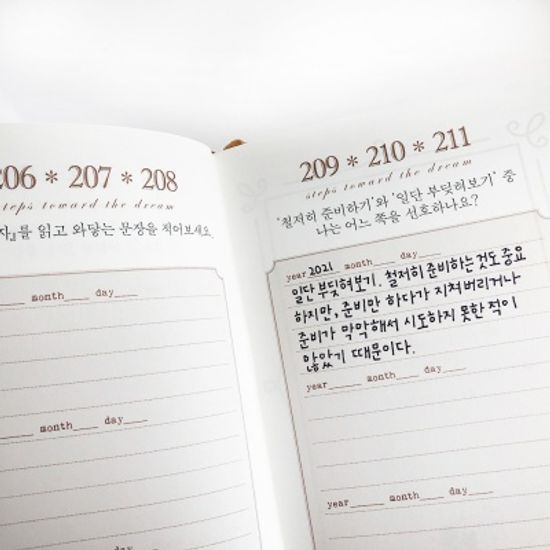 206 * 207 * 208
steps toward the dream
를 읽고 와닿는 문장을 적어보세요.
month____ day____
month____ day____
month____ day____
209 * 210 * 211
steps toward the dream
'철저히 준비하기'와 '일단 부딪혀보기' 중
나는 어느 쪽을 선호하나요?
year 2021 month____ day____
일단 부딪혀보기. 철저히 준비하는 것도 중요
하지만, 준비만 하다가 지쳐버리거나
준비가 막막해서 시도하지 못한 적이
많았기 때문이다.
year____ month____ day____
year____ month____ day____